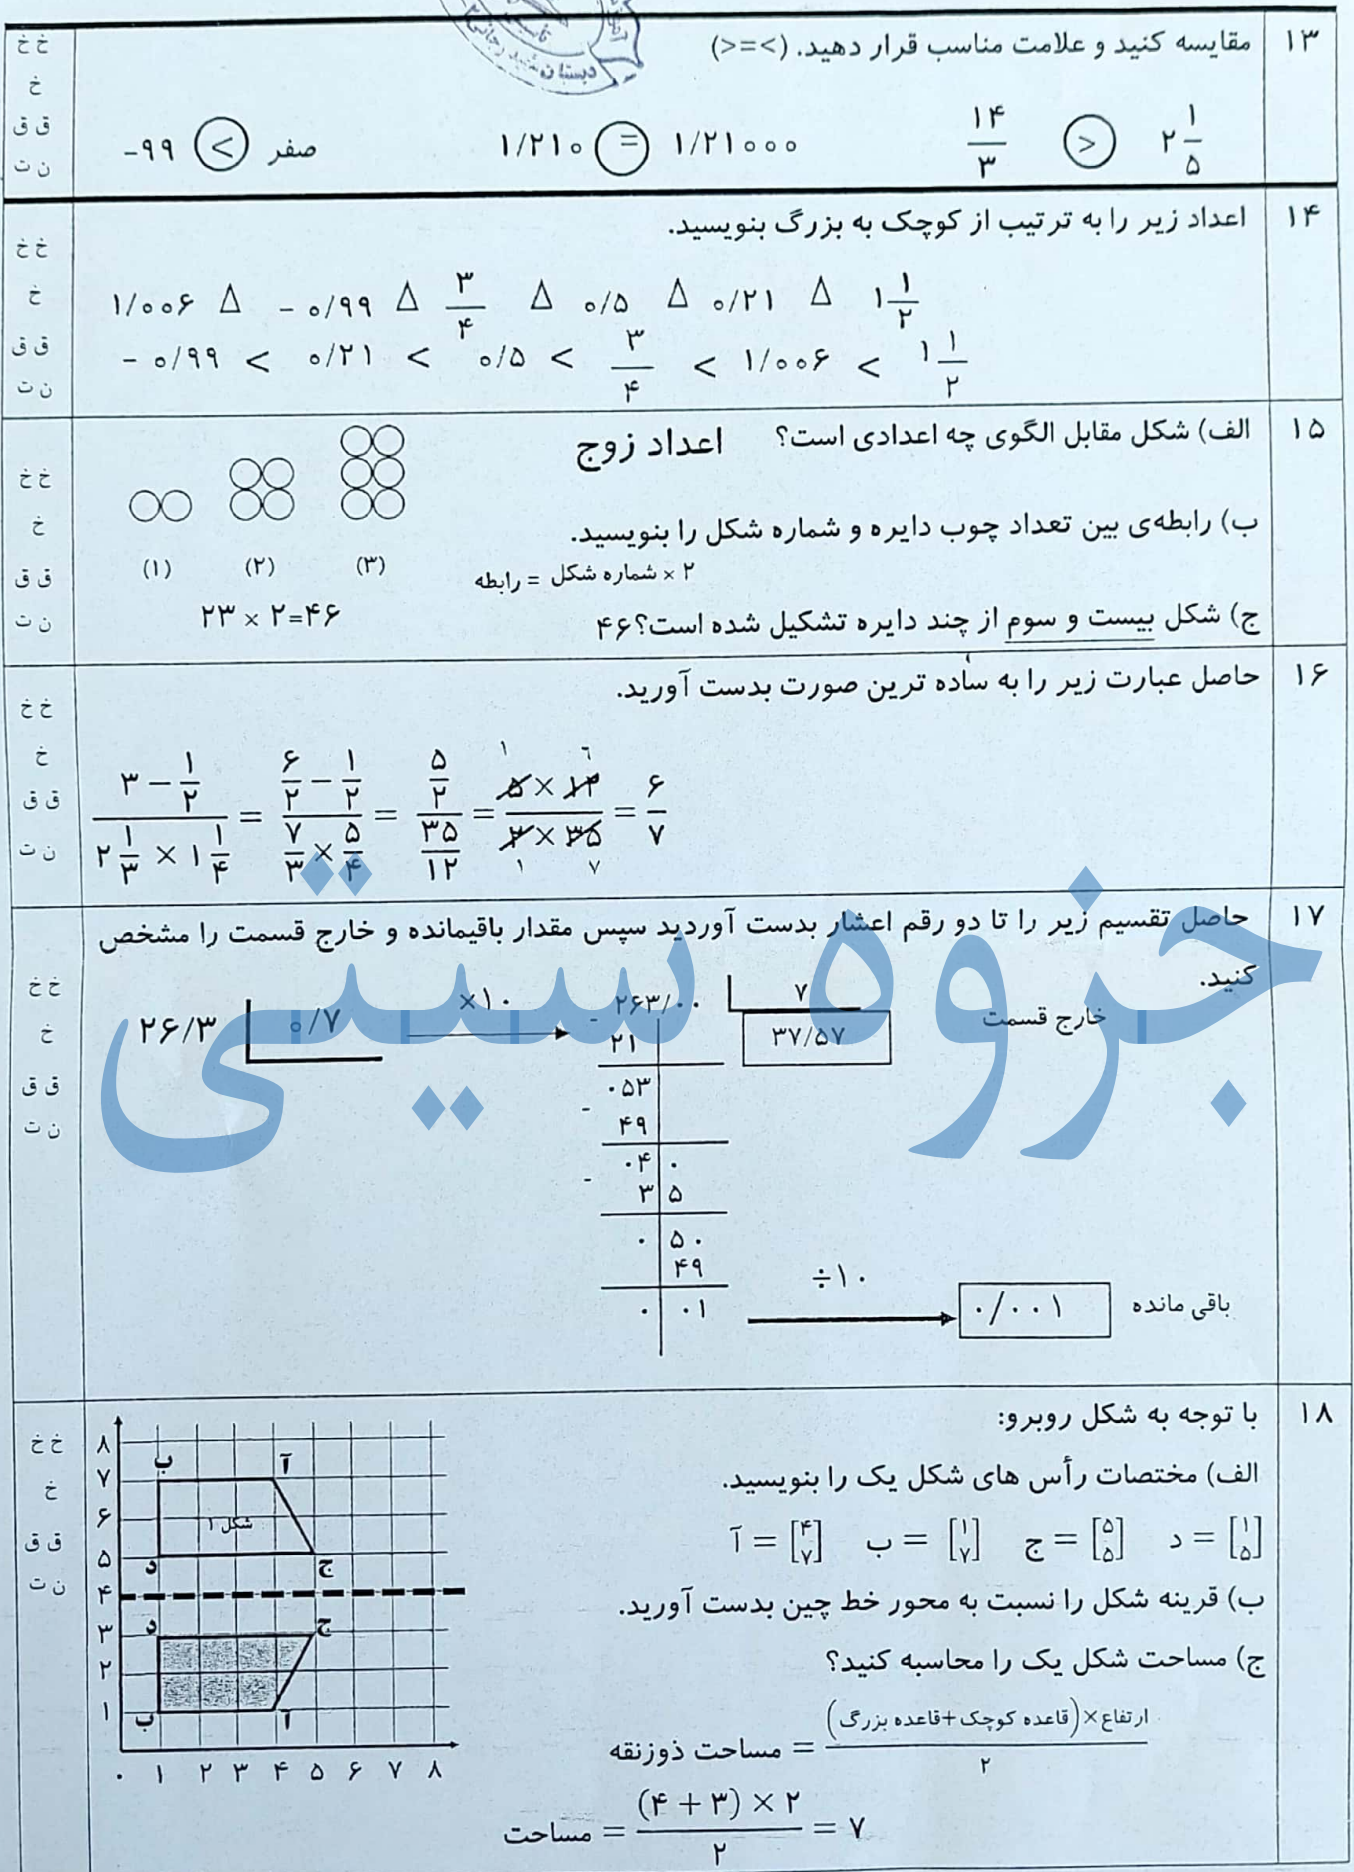 ۱۳ مقایسه کنید و علامت مناسب قرار دهید. (>=<)
۲ ۱/۵ > ۱۴/۳    ۱/۲۱۰۰۰ = ۱/۲۱۰    صفر > ۹۹-
خ خ
خ
ق ق
ن ت
۱۴ اعداد زیر را به ترتیب از کوچک به بزرگ بنویسید.
۱/۰۰۶ ∆ -۰/۹۹ ∆ ۳/۴ ∆ ۰/۵ ∆ ۰/۲۱ ∆ ۱ ۱/۲
-۰/۹۹ < ۰/۲۱ < ۰/۵ < ۳/۴ < ۱/۰۰۶ < ۱ ۱/۲
خ خ
خ
ق ق
ن ت
۱۵ الف) شکل مقابل الگوی چه اعدادی است؟ اعداد زوج
ب) رابطه‌ی بین تعداد چوب دایره و شماره شکل را بنویسید.
(۱) (۲) (۳)
۲ × شماره شکل = رابطه
۲۳ × ۲=۴۶
ج) شکل بیست و سوم از چند دایره تشکیل شده است؟ ۴۶
خ خ
خ
ق ق
ن ت
۱۶ حاصل عبارت زیر را به ساده ترین صورت بدست آورید.
(۳ − ۱/۲)/(۲ ۱/۳ × ۱ ۱/۴) = (۶/۲ − ۱/۲)/(۷/۳ × ۵/۴) = (۵/۲)/(۳۵/۱۲) = (۵ × ۱۲)/(۲ × ۳۵) = ۶/۷
۱ ۶
۱ ۷
خ خ
خ
ق ق
ن ت
۱۷ حاصل تقسیم زیر را تا دو رقم اعشار بدست آوردید سپس مقدار باقیمانده و خارج قسمت را مشخص
کنید.
۲۶/۳ ۰/۷ ×۱۰ ۲۶۳/۰۰ ۷
۳۷/۵۷ خارج قسمت
- ۲۱
۰۵۳
- ۴۹
۰۴ ۰
- ۳ ۵
۰ ۵۰
۴۹
۰ ۰۱ ÷۱۰ ۰/۰۰۱ باقی مانده
خ خ
خ
ق ق
ن ت
جزوه سیتی
۱۸ با توجه به شکل روبرو:
الف) مختصات رأس های شکل یک را بنویسید.
آ = [۴ ۷] ب = [۱ ۷] ج = [۵ ۵] د = [۱ ۵]
ب) قرینه شکل را نسبت به محور خط چین بدست آورید.
ج) مساحت شکل یک را محاسبه کنید؟
مساحت ذوزنقه = ارتفاع×(قاعده کوچک+قاعده بزرگ)/۲
مساحت = (۴ + ۳) × ۲/۲ = ۷
۸
۷
۶
۵
۴
۳
۲
۱
۰ ۱ ۲ ۳ ۴ ۵ ۶ ۷ ۸
ب آ
شکل ۱
د ج
د ج
ب آ
خ خ
خ
ق ق
ن ت